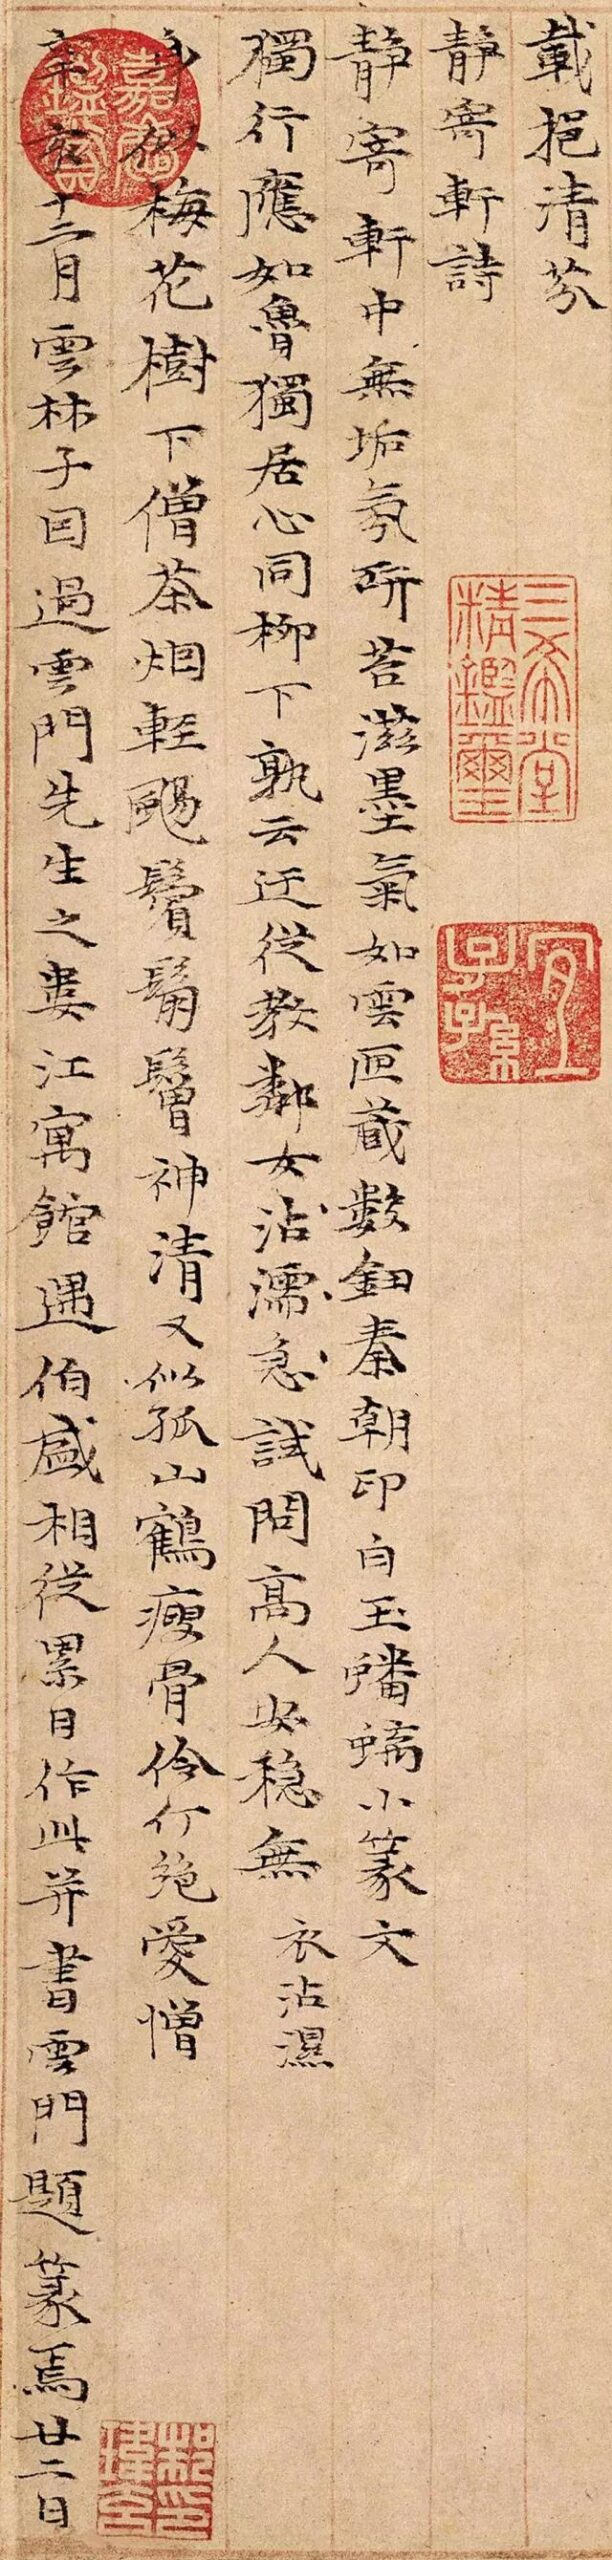 載挹清芬
靜寄軒詩
靜寄軒中無垢氛研苔滋墨氣如雲匣藏數鈕秦朝印白玉蟠螭小篆文
獨行應如魯獨居心同柳下孰云迂從教鄰女沾濡急試問高人安穩無 衣沾濕
身似梅花樹下僧茶烟輕颺鬢鬅鬙神清又似孤山鶴瘦骨伶仃絶愛憎
辛亥十二月雲林子因過雲門先生之婁江寓館遇伯盛相從累日作此并書雲門題篆焉廿二日
三希堂精鑑璽
宜子孫
嘉慶鑑賞